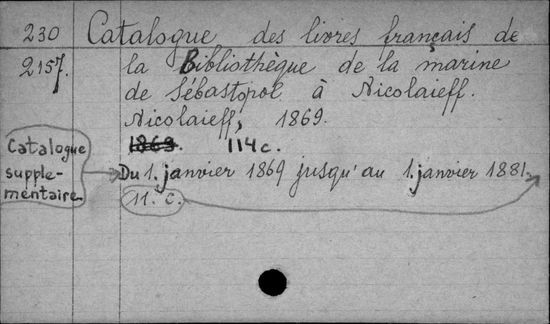 230 Catalogue des livres français de
2157. la Bibliothèque de la marine
de Sébastopol à Nicolaieff.
Nicolaieff, 1869.
1869. 114 c.
Catalogue
supple-
mentaire
Du 1. janvier 1869 jusqu'au 1. janvier 1881.
11. c.